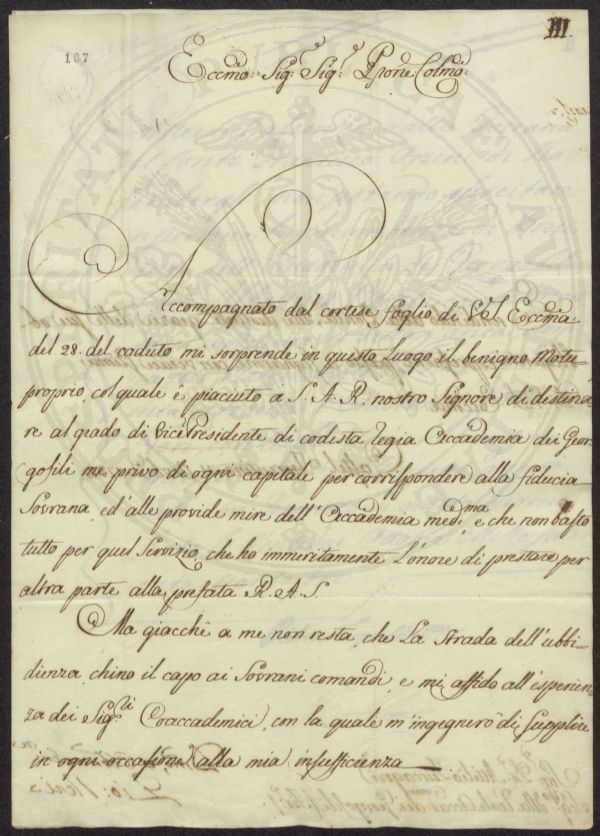 III.
107
Eccmo. Sigr.e Sigr.e Pprone Colmo.
Accompagnato dal cortese foglio di V.S. Eccma.
del 28. del caduto mi sorprende in questo Luogo il benigno Motu-
proprio, col quale è piaciuto a S. A. R. nostro Signore di destina-
re al grado di Vice Presidente di codesta Regia Accademia dei Geor-
gofili me privo di ogni capitale per corrispondere alla fiducia
Sovrana, ed alle provide mire dell' Accademia med.ma e che non basto
tutto per quel Servizio, che ho immeritamente L'onore di prestare per
altra parte alla prefata R. A. S.
Ma giacchè a me non resta, che La Strada dell' ubbi-
dienza, chino il capo ai Sovrani comandi, e mi affido all' esperien-
za dei Sigg.ri Coaccademici, con la quale m' ingegnerò di Supplire
in ogni occasione alla mia insufficienza